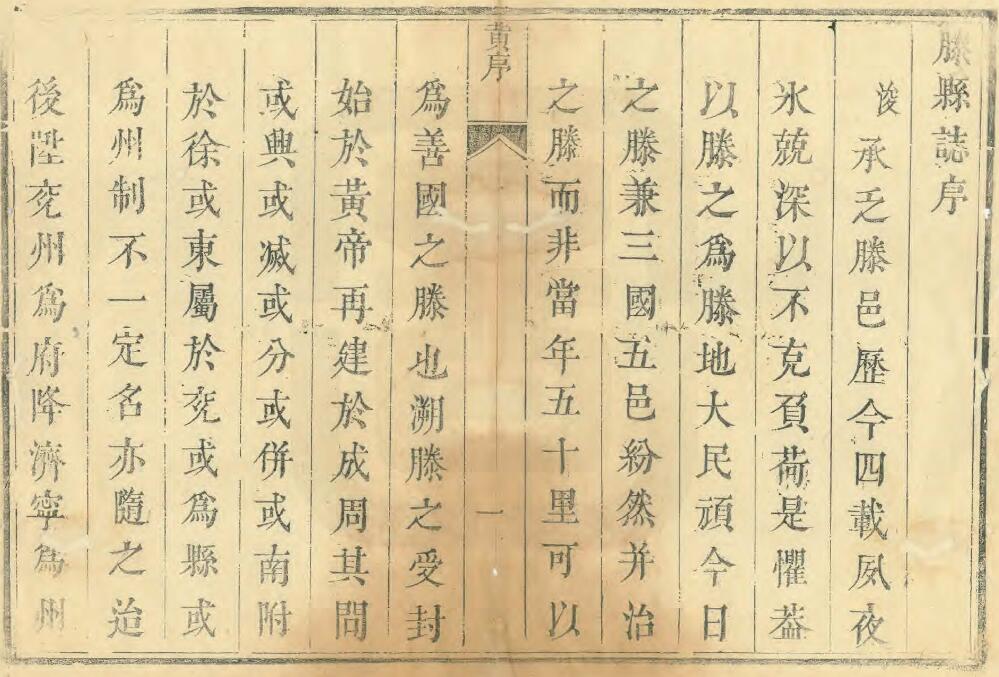 滕縣誌序
浚承乏滕邑歷今四載夙夜
氷兢深以不克負荷是懼葢
以滕之爲滕地大民頑今日
之滕兼三國五邑紛然并治
之滕而非當年五十里可以
黄序
一
爲善國之滕也溯滕之受封
始於黃帝再建於成周其間
或興或滅或分或併或南附
於徐或東屬於兖或爲縣或
爲州制不一定名亦隨之迨
後陞兖州爲府降濟寧爲州